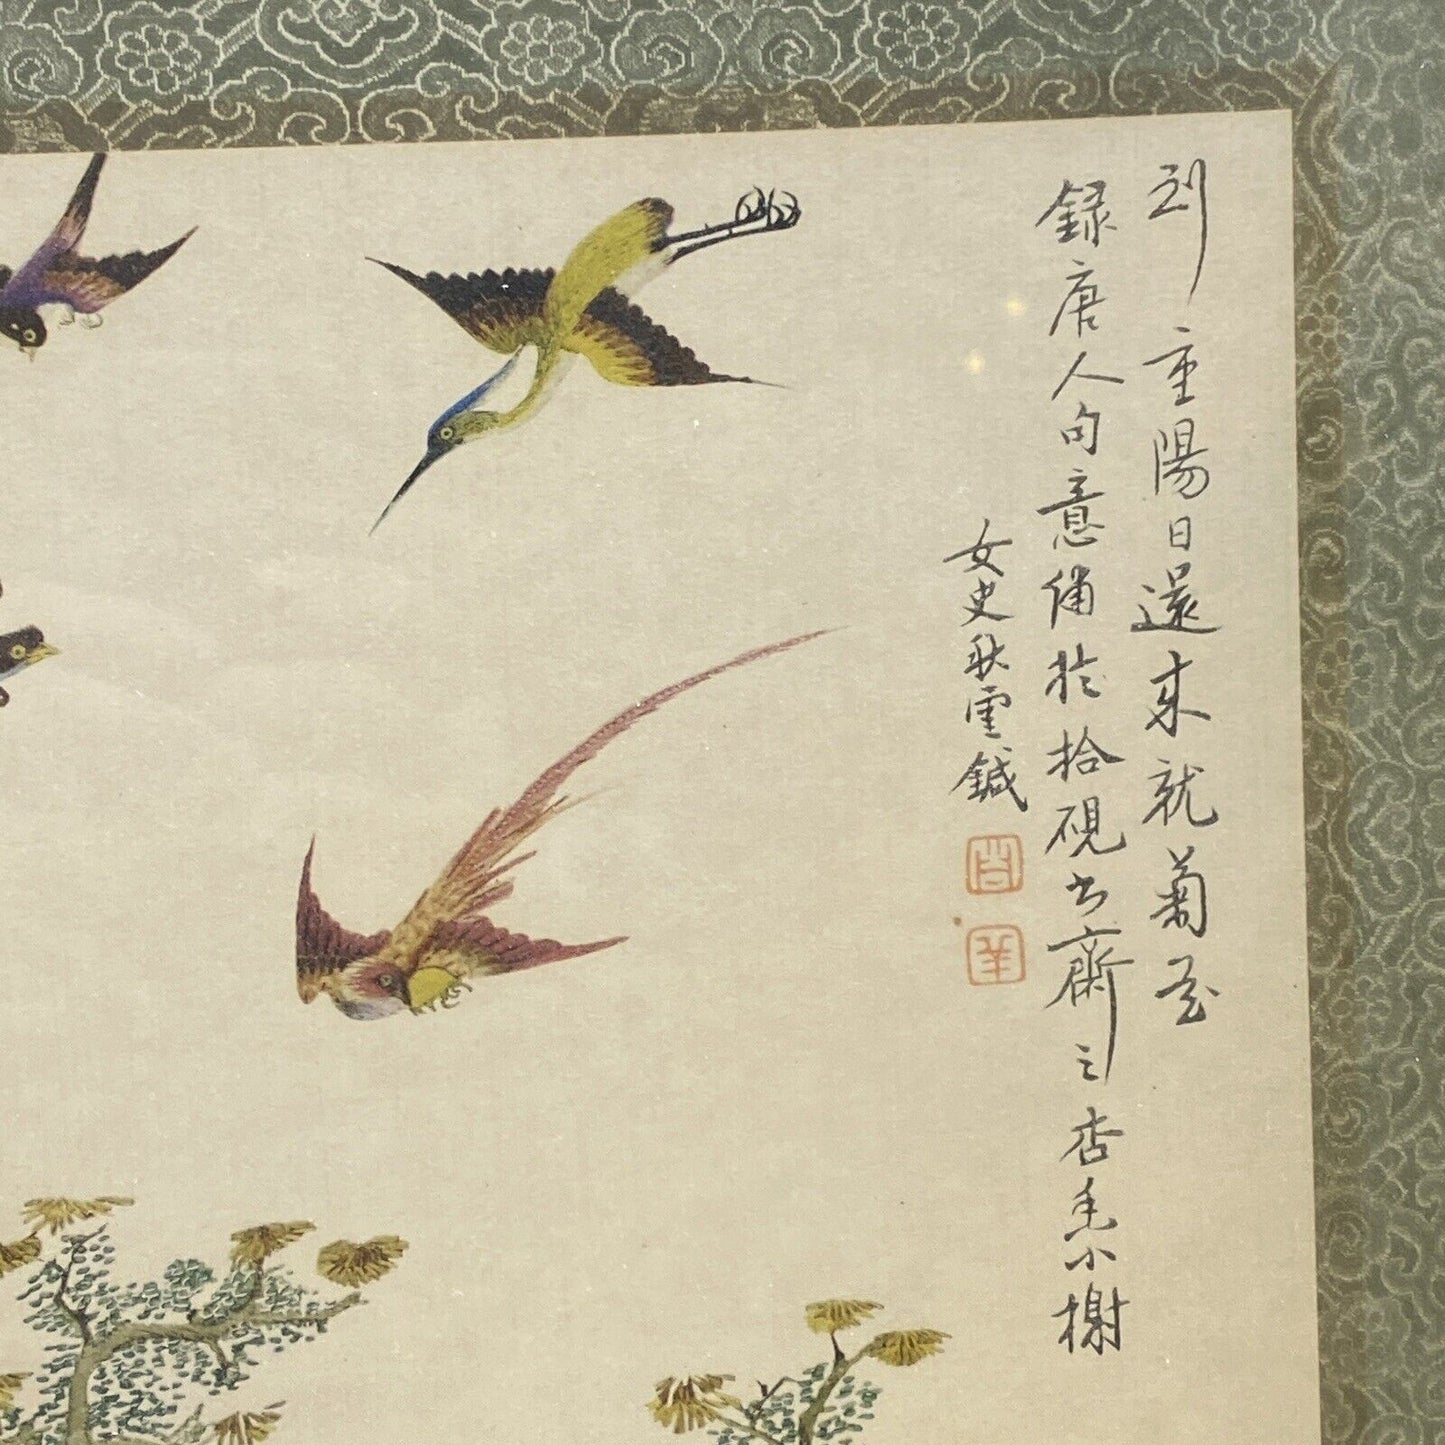 到重陽日還來就菊花
錄唐人句意備於拾硯書齋之杏小榭
女史秋雲鍼